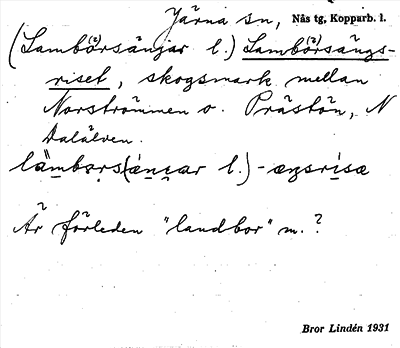 Järna sn, Nås tg, Kopparb. l.
(Lambo(?)rsängar l.) Lambo(?)rsängs-
riset, skogsmark mellan
Norströmmen o. Prästön, N
Dalälven.
lämbors(ä́ŋar l.) - æŋsrisæ
Är förleden "landbor" m.?
Bror Lindén 1931